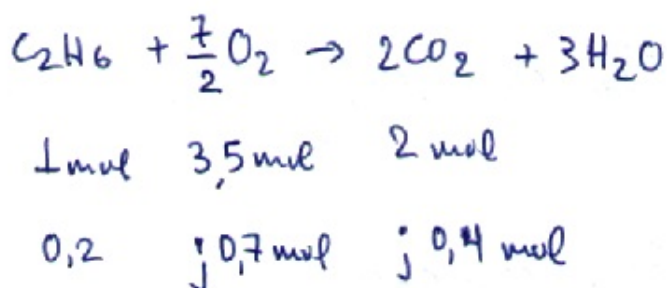 C₂H₆ + 7/2 O₂ → 2CO₂ + 3H₂O
1 mol 3,5 mol 2 mol
0,2 ; 0,7 mol ; 0,4 mol